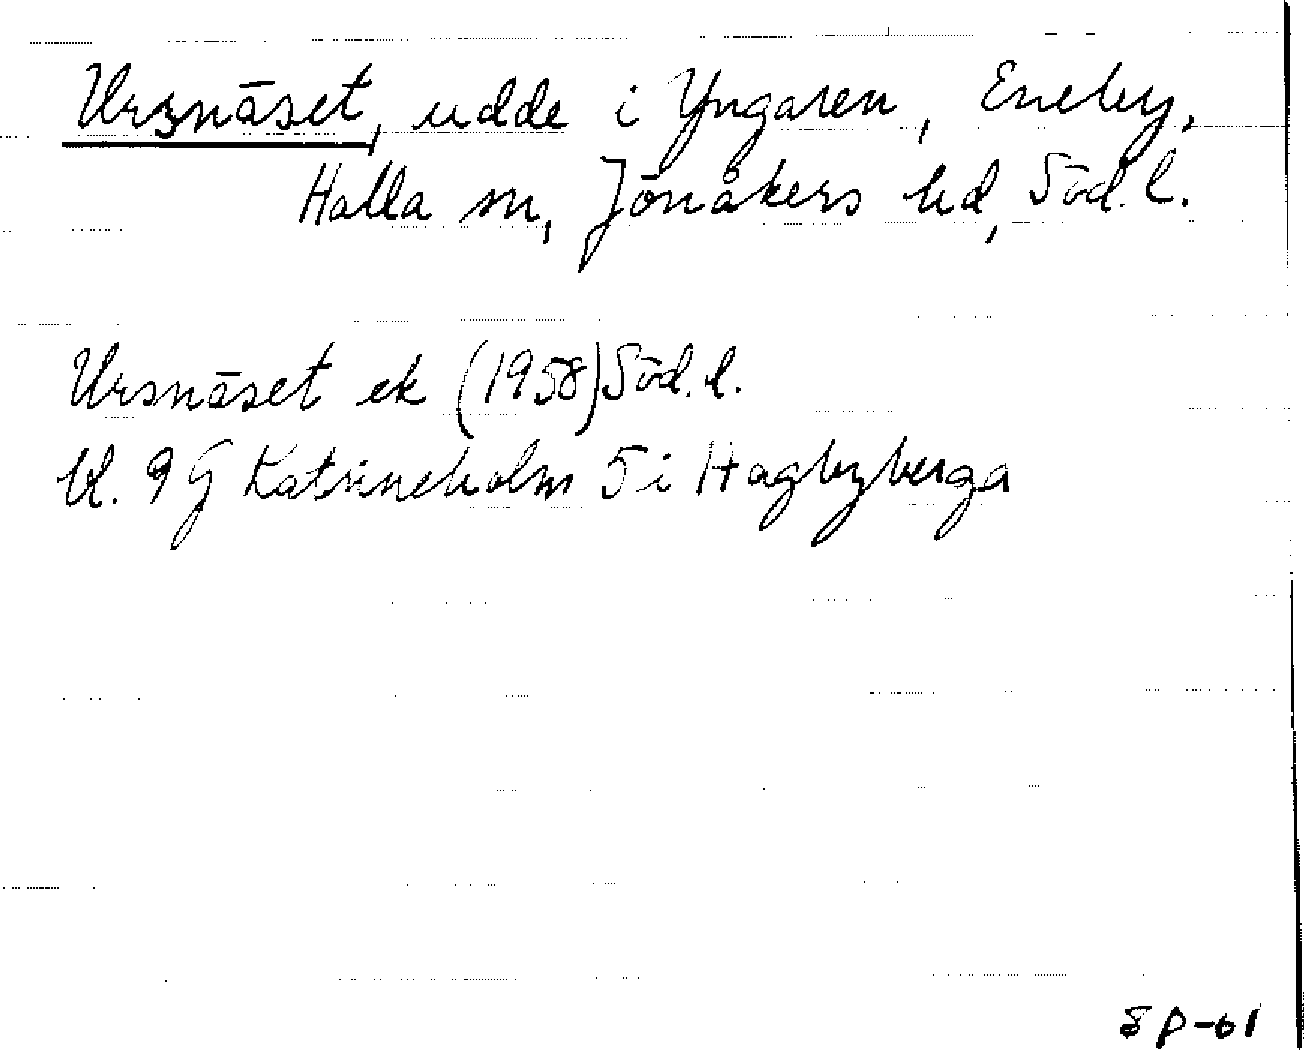 Ursnäset, udde i Yngaren, Eneby,
Halla sn, Jönåkers hd, Söd. l.
Ursnäset ek (1958) Söd. l.
bl. 9 G Katrineholm 5 i Hagbyberga
SP-61